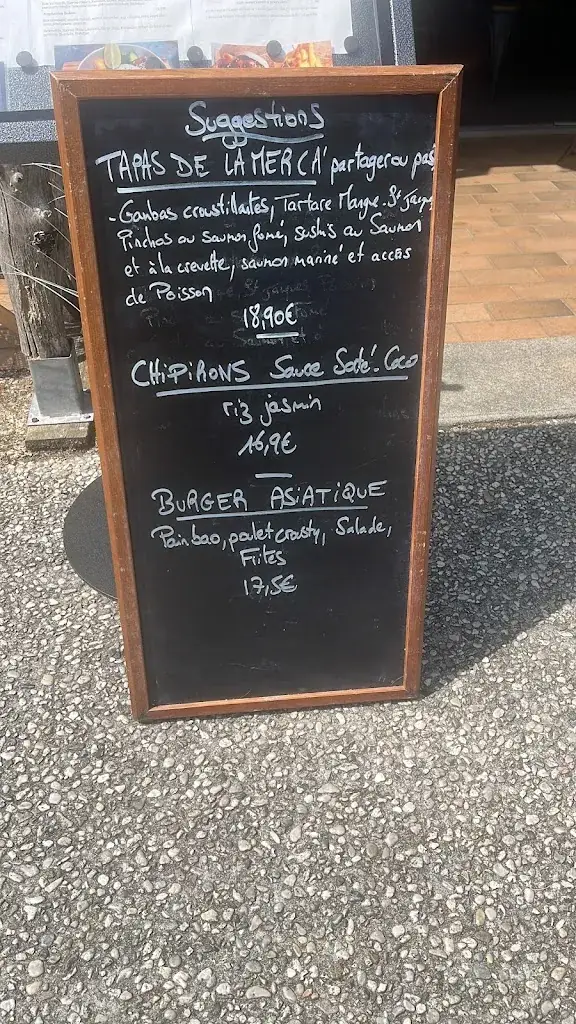 Suggestions
TAPAS DE LA MER À partager ou pas
- Gambas croustillantes, Tartare Mangue. St Jacques
Pinchos au saumon fumé, sushis au Saumon
et à la crevette, saumon mariné et accras
de Poisson
18,90€
CHIPIRONS Sauce Saté. Coco
riz jasmin
16,9€
BURGER ASIATIQUE
Pain bao, poulet crousty, Salade,
Frites
17,5€